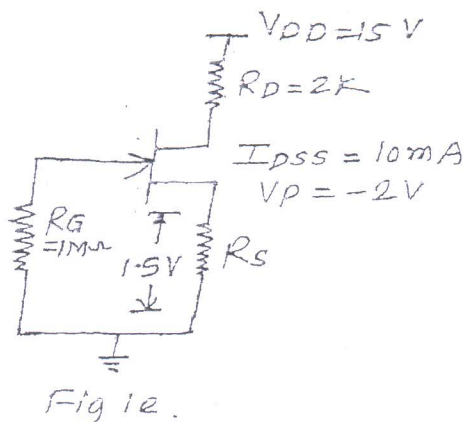 VDD=15V
RD=2K
IDSS=10mA
VP=-2V
RG
=1MΩ
1.5V
RS
Fig 1e.